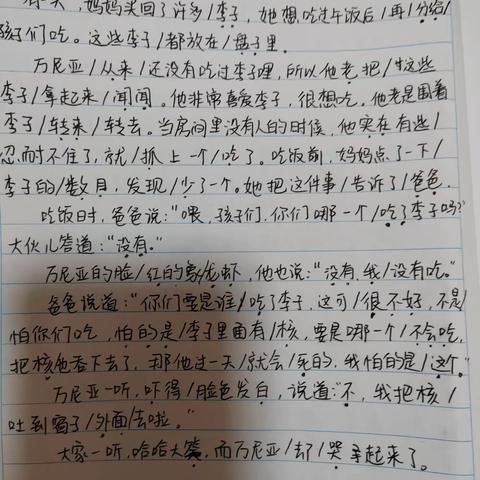 天,妈妈买回了许多/李子,她想吃过午饭后/再/分给/
孩子们吃。这些李子/都放在/盘子里。
万尼亚/从来/还没有吃过李子哩,所以他老把/这些
李子/拿起来/闻闻。他非常喜爱李子,很想吃。他老是围着
李子/转来/转去。当房间里没有人的时候,他实在有些/
忍耐不住了,就/抓上一个/吃了。吃饭前,妈妈点了一下/
李子的/数目,发现/少了一个。她把这件事/告诉了/爸爸.
吃饭时,爸爸说:“喂,孩子们,你们哪一个/吃了李子吗?”
大伙儿答道:“没有.”
万尼亚的脸/红的象/龙虾,他也说:“没有,我/没有吃。”
爸爸说道:“你们要是谁/吃了李子,这可/很不好,不是/
怕你们吃,怕的是/李子里面有/核,要是哪一个/不会吃,
把核也吞下去了,那他过一天/就会/死的,我怕的是/这个.”
万尼亚一听,吓得/脸色发白,说道:“不,我把核/
吐到窗子/外面/去啦。”
大家一听,哈哈大笑,而万尼亚/却/哭起来了。